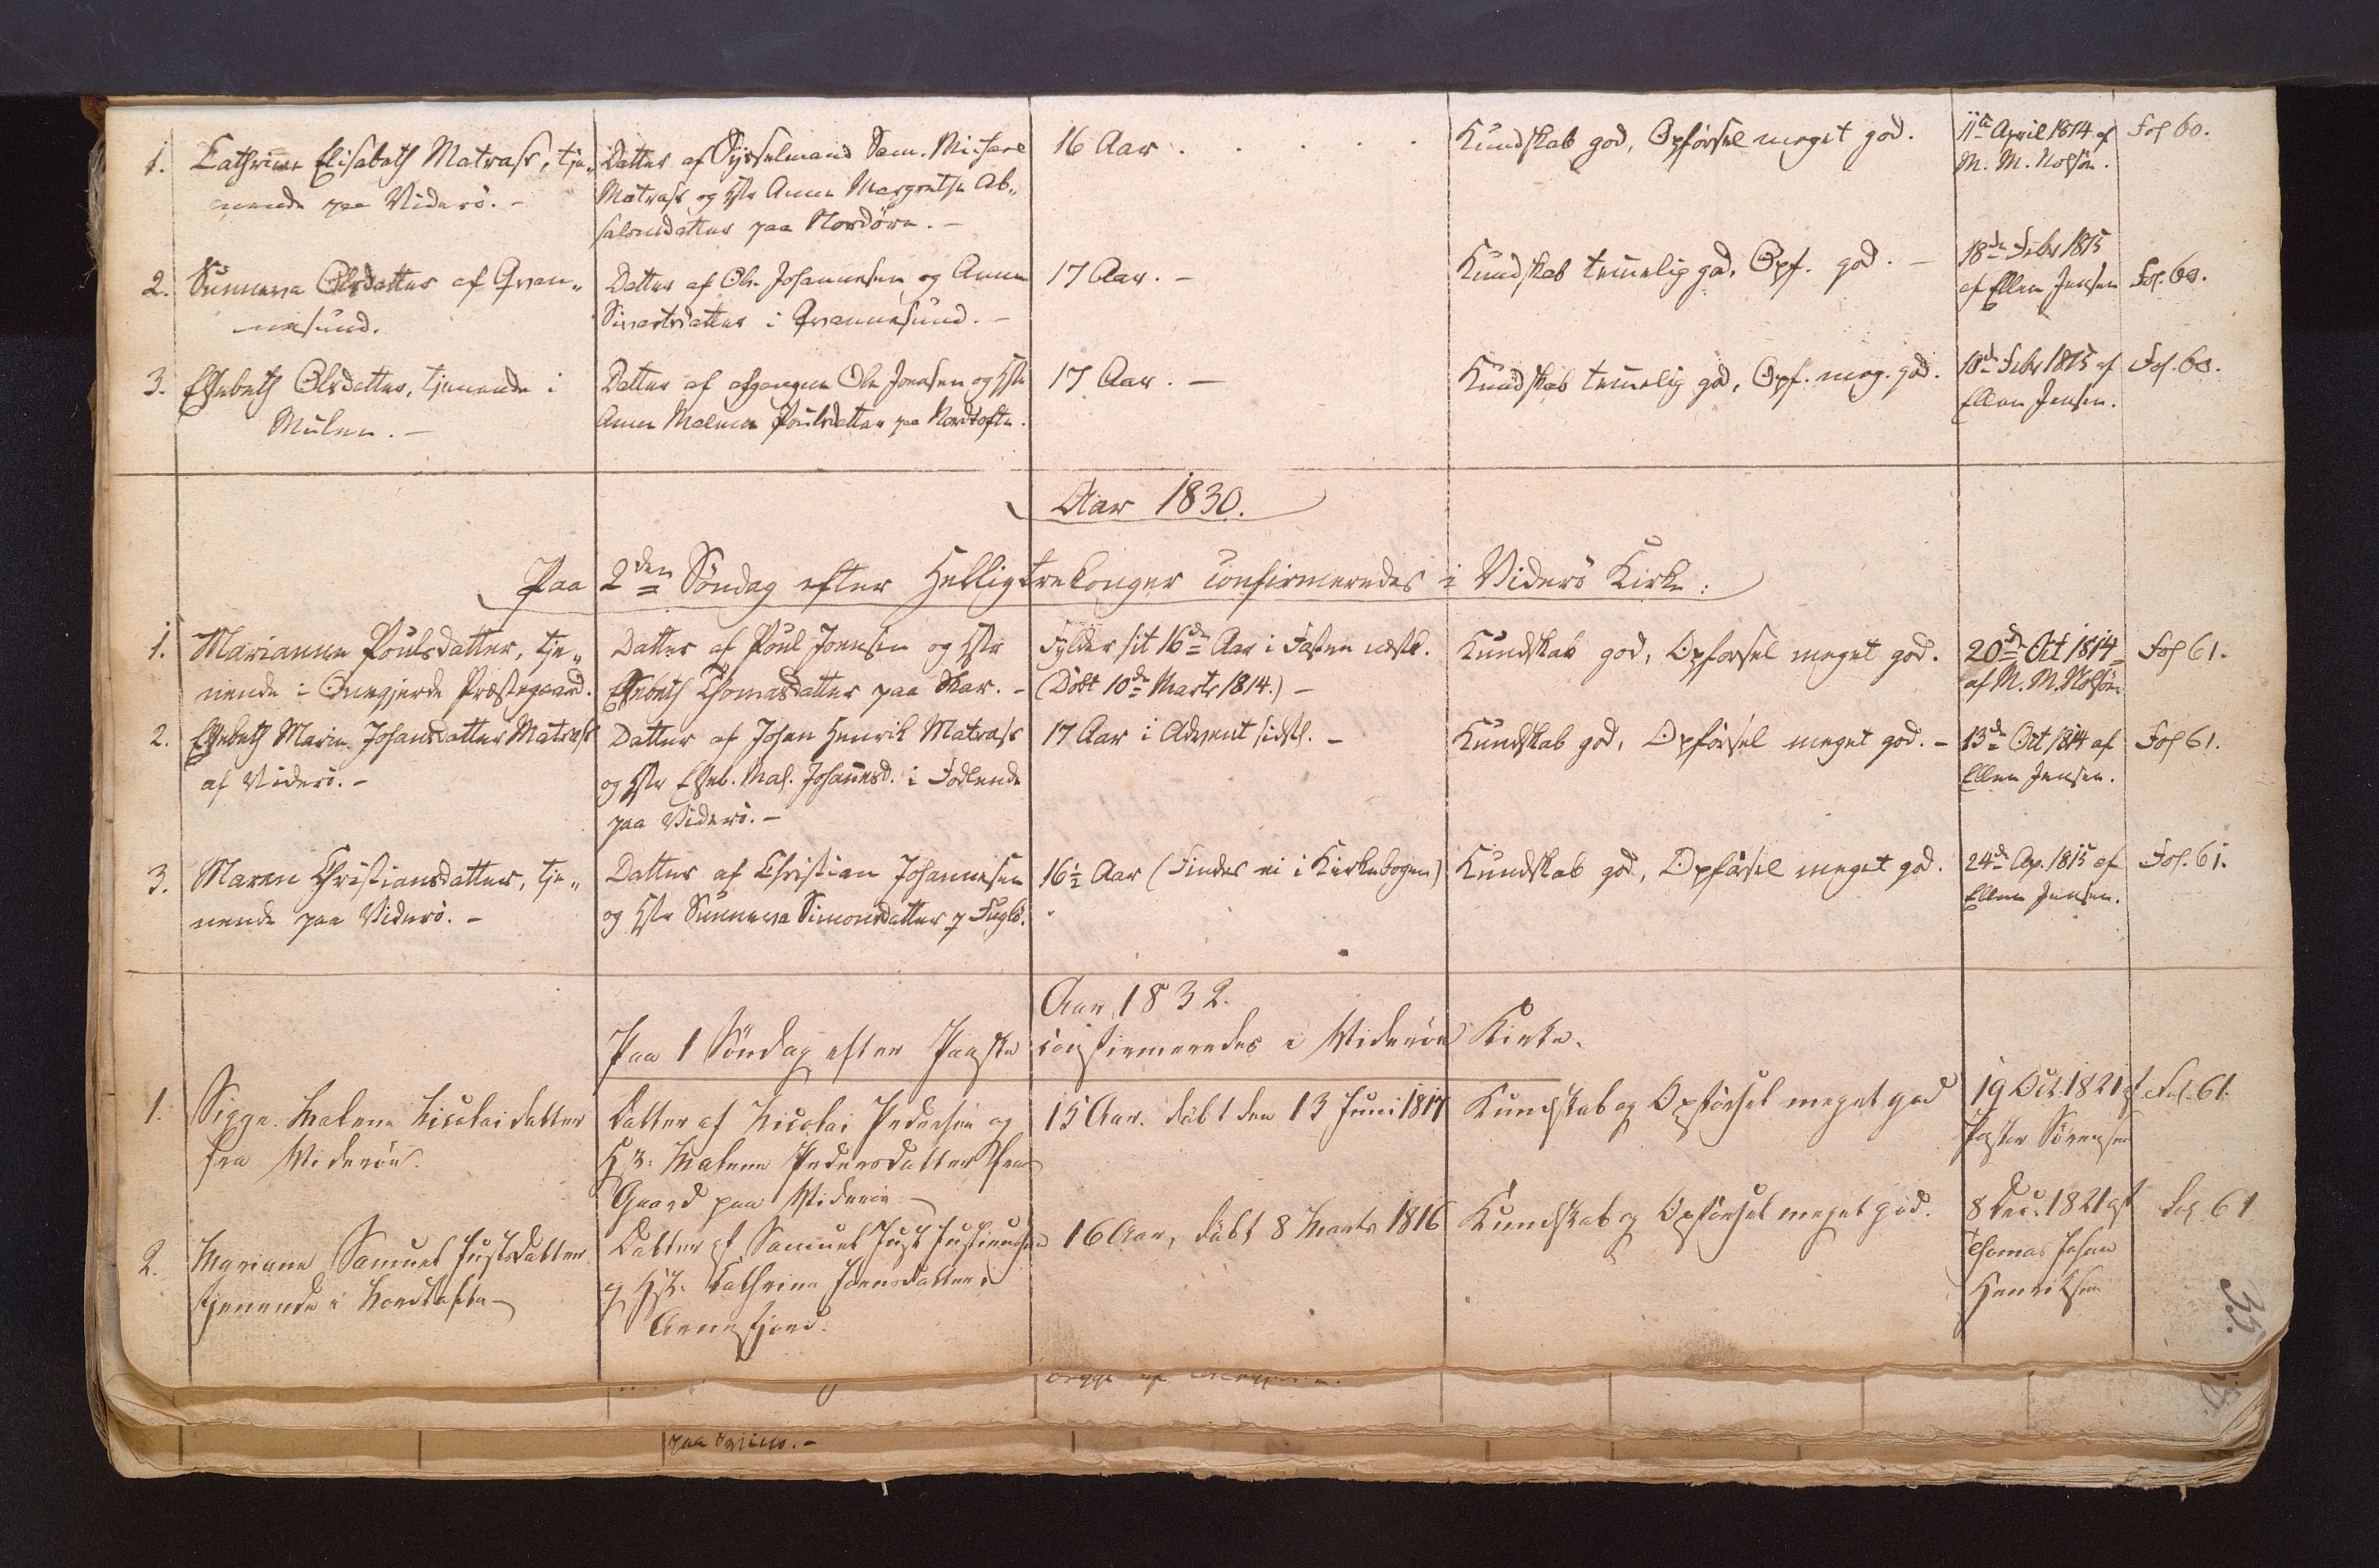 1. Cathrine Elisabeth Matrass, tje„
nende paa Viderö. -
Datter af Sysselmand Sam. Michael
Matrass og Hstr Anna Margretha Ab„
salonsdatter paa Nordöre. -
16 Aar . . . . .
Kundskab god, Opförsel meget god.
11te April 1814 af
M. M. Nolsöe.
Fol 60.
2. Sunneva Olsdatter af Qvan„
nesund.
Datter af Ole Johannesen og Anna
Sivertsdatter i Qvannesund. -
17 Aar. -
Kundskab temelig god, Opf. god. -
18de Febr 1815
af Ellen Jensen
Fol. 60.
3. Elsebeth Olsdatter, tjenende i
Mulen. -
Datter af afgangne Ole Joensen og Hstr
Anna Malena Poulsdatter paa Nordtofte.
17 Aar. -
Kundskab temelig god, Opf. meg. god.
10de Febr 1815 af
Ellen Jensen.
Fol. 60.
Aar 1830.
Paa 2den Söndag efter Helligtrekonger confirmeredes i Viderö Kirke:
1. Marianne Poulsdatter, tje„
nende i Onegjerde Præstegaard.
Datter af Poul Joensen og Hstr
Elsebeth Thomasdatter paa Skar. -
Fylder sit 16de Aar i Fasten næstk.
(Döbt 10de Marts 1814.) -
Kundskab god, Opförsel meget god.
20de Oct 1814
af M. M. Nolsöe
Fol 61.
2. Elsebeth Maria Johansdatter Matrass
af Viderö. -
Datter af Johan Henrik Matrass
og Hstr Elseb. Mal. Johannesd. i
paa Viderö. -
17 Aar i Advent sidstl. -
Kundskab god, Opförsel meget god. -
13de Oct 1814 af
Ellen Jensen.
Fol 61.
3. Maren Christiansdatter, tje„
nende paa Viderö. -
Datter af Christian Johannesen
og Hstr Sunneva Simonsdatter p Fuglö.
16½ Aar (Findes ei i Kirkebogen)
Kundskab god, Opförsel meget god.
24de Ap. 1815 af
Ellen Jensen.
Fol. 61.
Aar 1832.
Paa 1 Söndag efter Paaske confirmeredes i Videröe Kirke.
1. Sigga Malene Nicolaidatter
fra Videröe.
Datter af Nicolai Pedersen og
Hst: Malene Pedersdatter
Gaard paa Videröe -
15 Aar. döbt den 13 Juni 1817
Kundskab og Opförsel meget god
19 Oct. 1821 af
Pastor Sörensen
Fol. 61.
2. Mariane Samuel Justsdatter
tjenende i Nordtofte -
Datter af Samuel Just Justinussen
og Hst. Cathrine Joensdatter i
Arnefjord.
16 Aar, döbt 8 Marts 1816
Kundskab og Opförsel meget god.
8 Dec: 1821 af
Thomas Johan
Henriksen
Fol 61
35.